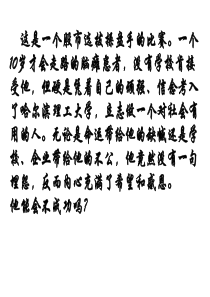 这是一个股市选拔操盘手的比赛。一个
10岁才会走路的脑瘫患者，没有学校肯接
受他，但硬是凭着自己的顽强、信念考入
了哈尔滨理工大学，立志做一个对社会有
用的人。无论是命运带给他的缺憾还是学
校、企业带给他的不公，他竟然没有一句
埋怨，反而内心充满了希望和感恩。
他能会不成功吗？